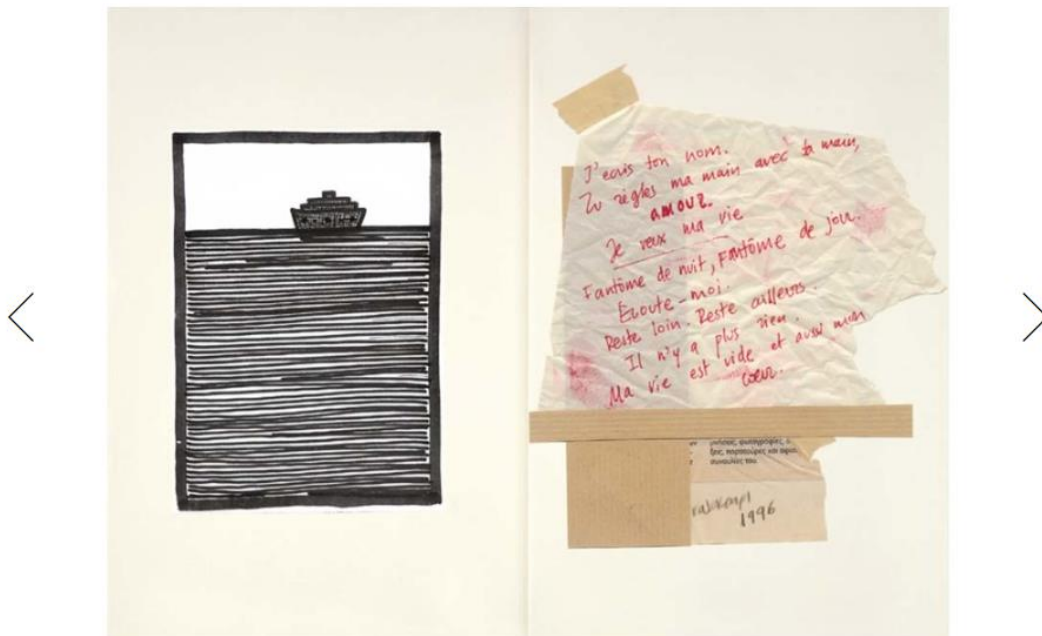 J'ecris ton nom.
Tu règles ma main avec ta main,
amour.
Je veux ma vie
Fantôme de nuit, Fantôme de jour.
Ecoute-moi.
Reste loin. Reste ailleurs.
Il n'y a plus rien
Ma vie est vide et aussi mon
cœur.
φωτογραφίες,
και
συναυλίες του.
καλοκαιρι
1996